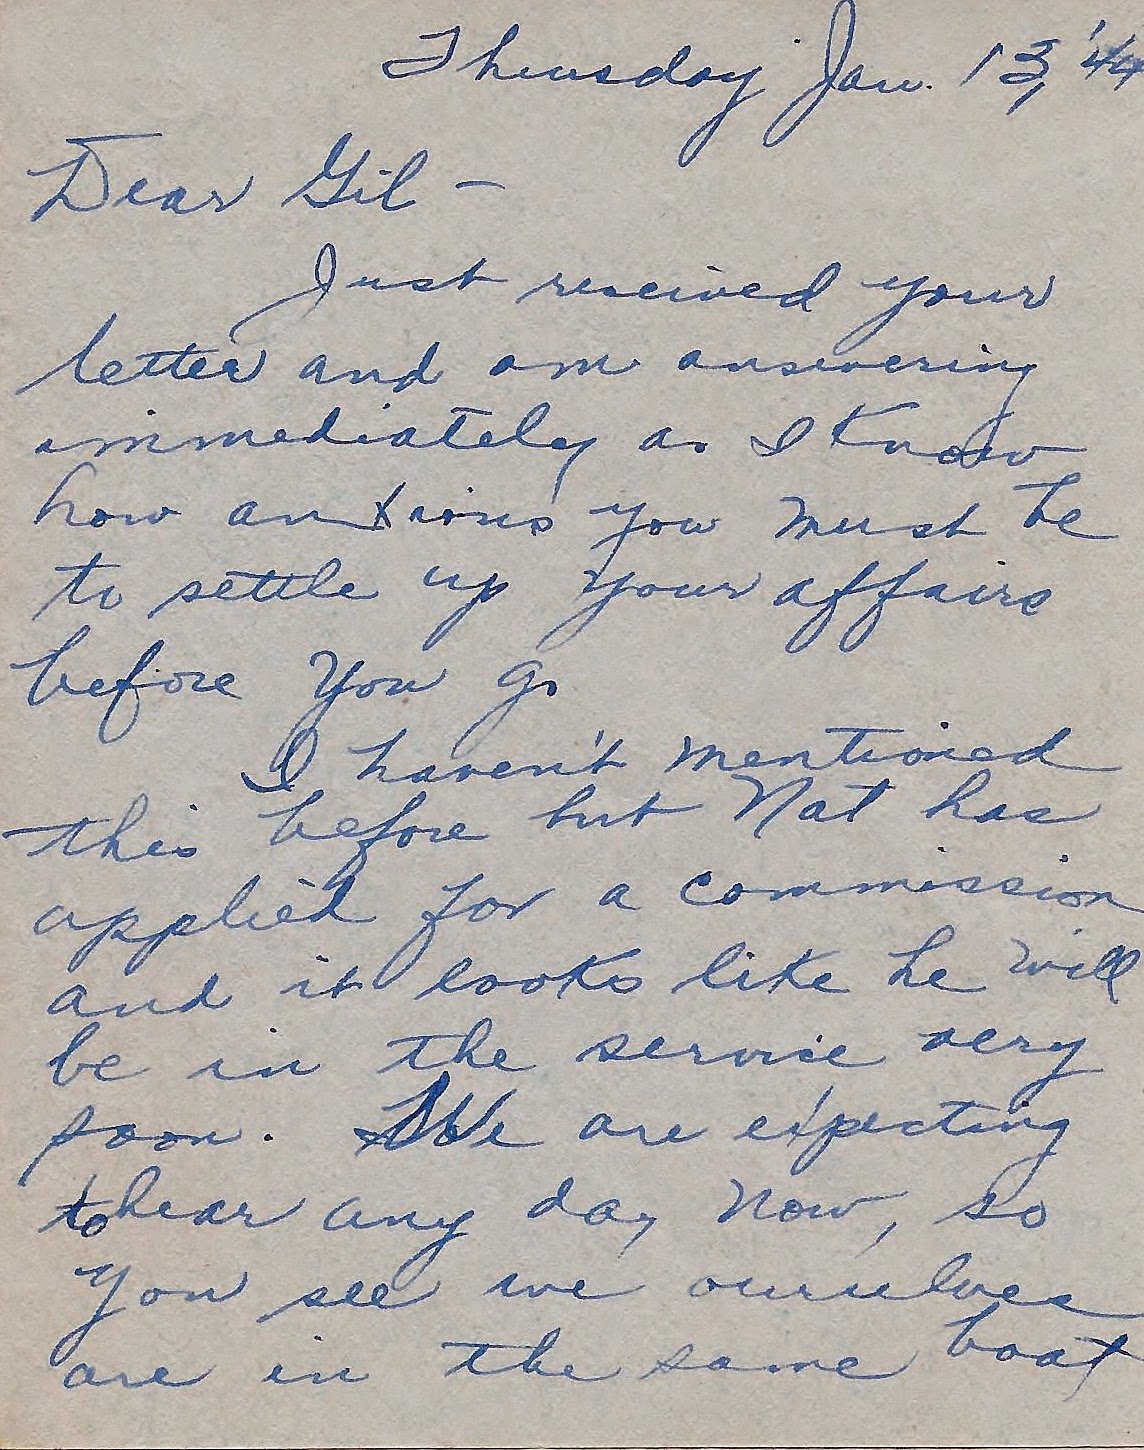 Thursday Jan. 13, '44
Dear Gil —
Just received your
letter and am answering
immediately as I know
how anxious you must be
to settle up your affairs
before you go
I haven't mentioned
this before but Nat has
applied for a commission
and it looks like he will
be in the service very
soon. We are expecting
to hear any day now, so
you see we ourselves
are in the same boat